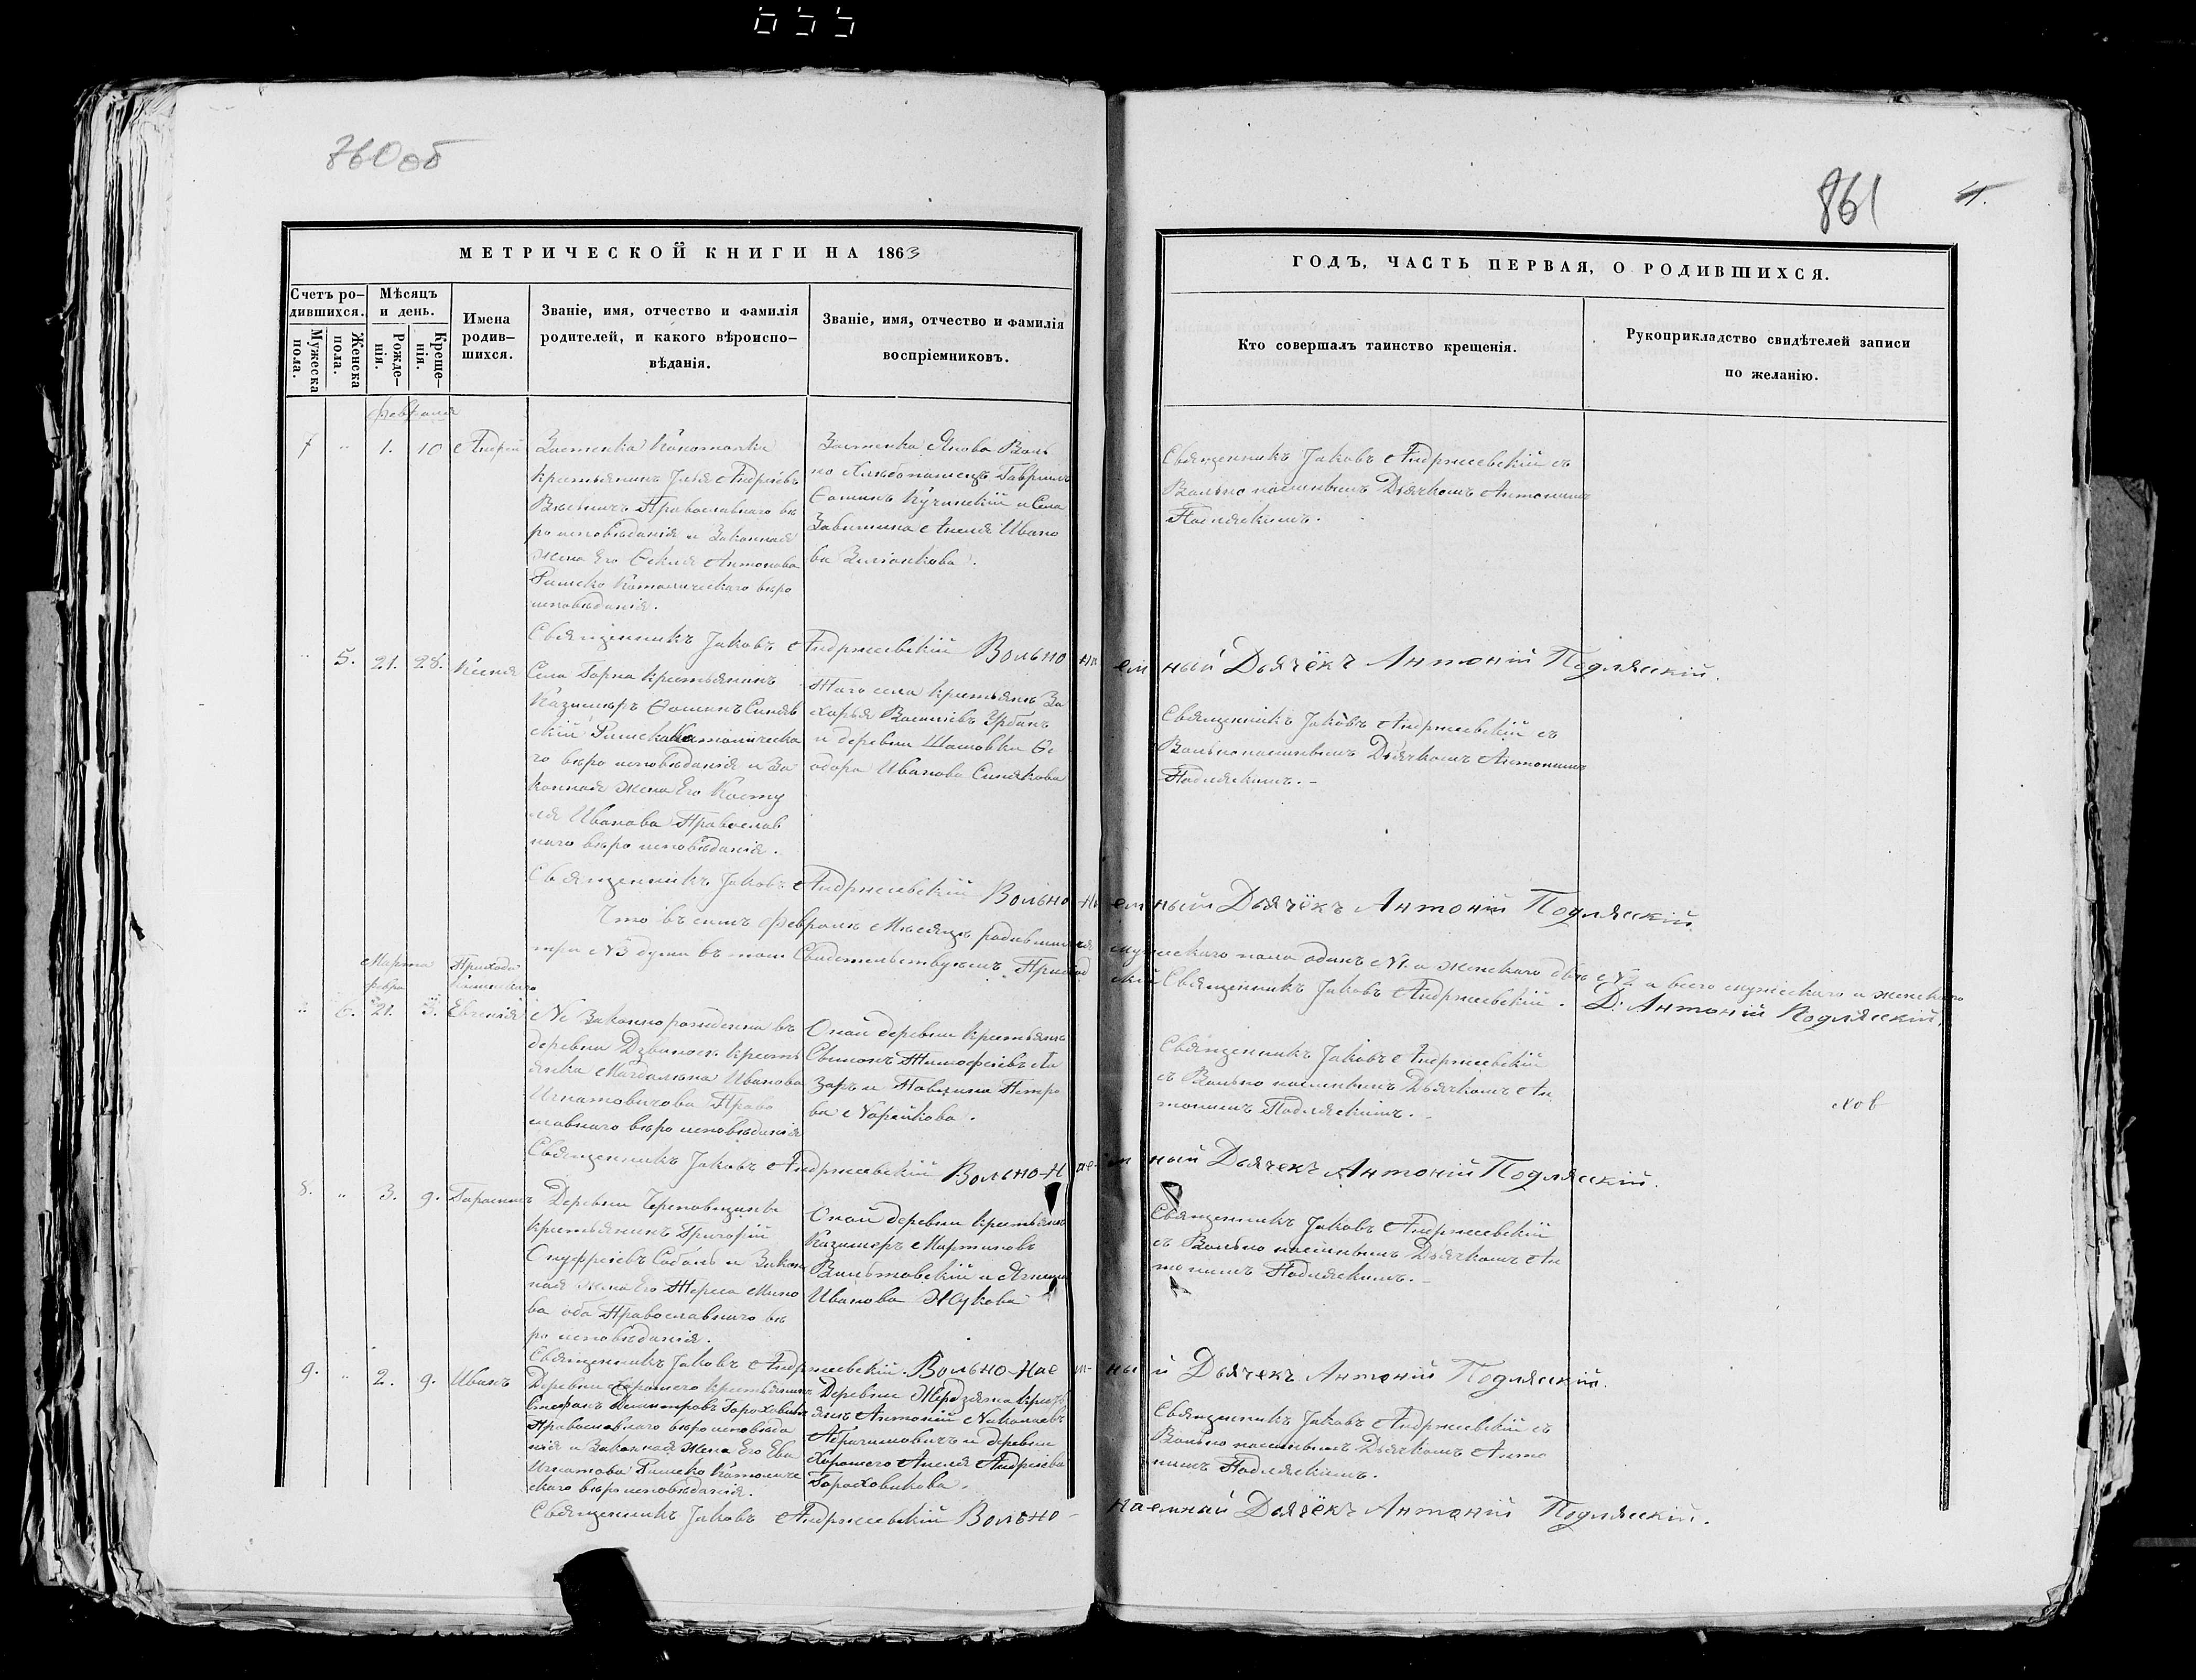 860 об
861
4.
МЕТРИЧЕСКОЙ КНИГИ НА 1863
ГОДЪ, ЧАСТЬ ПЕРВАЯ, О РОДИВШИХСЯ.
Счетъ ро-
дившихся.
Мужеска
пола.
Женска
пола.
Мѣсяцъ
и день.
Рожде-
нія.
Креще-
нія.
Имена
родив-
шихся.
Званіе, имя, отчество и фамилія
родителей, и какого вѣроиспо-
вѣданія.
Званіе, имя, отчество и фамилія
воспріемниковъ.
Кто совершалъ таинство крещенія.
Рукоприкладство свидѣтелей записи
по желанію.
Февраля
7 " 1. 10 Андрей
Застенка
крестьянинъ Илья Андреевъ
Православнаго вѣ
ро исповѣданія и Законная
жена Его Фекля Антонова
Римско Католическаго вѣро
исповѣданія.
Застенка Янова Воль
но Хлѣбопашецъ Гавріилъ
Фоминъ Кучинскій и Села
Анеля Ивано
ва
Священникъ Іаковъ Андржеевскій съ
Вольно наемнымъ Дьячкомъ Антониемъ
Подляскимъ.
Священникъ Іаковъ Андржеевскій Вольно на ем ный Дьячёкъ Антоній Подляскій.
" 5. 21. 28. Ксенія
Села Горна крестьянинъ
Казимиръ Фоминъ Синяв
скій Римско Католическа
го вѣро исповѣданія и За
конная жена Его Косту
ля Иванова Православ
наго вѣро исповѣданія.
Того села крестьянъ За
харья Васильевъ Урбанъ
и деревни Шашовки Фе
одора Иванова Синякова
Священникъ Іаковъ Андржеевскій съ
Вольнонаемнымъ Дьячкомъ Антониемъ
Подляскимъ. -
Священникъ Іаковъ Андржеевскій Вольно - На ем ный Дьячёкъ Антоній Подляскій.
Что въ семъ Феврале Месяцѣ родившихся мужескаго пола одинъ №1. а женскаго двѣ №2 а всего мужескаго и женскаго
три №3 души въ томъ Свидетельствуемъ Приход скій Священникъ Іаковъ Андржеевскій. Д: Антоній Подляскій.
Марта
Февра
Прихода
" 6. 21. 3. Евгенія
Не Законнорожденна въ
деревни Дзвинось крестъ
янка Магдалена Иванова
Игнатовичова Право
славнаго вѣро исповѣданія
Оной деревни крестьянъ
Свимонъ Тимофеевъ Ла
заръ и Петро
ва
Священникъ Іаковъ Андржеевскій
съ Вольно наемнымъ Дьячкомъ Ан
тониемъ Подляскимъ. -
Священникъ Іаковъ Андржеевскій Вольно-Н ае- м ный Дьячекъ Антоній Подляскій.
8. " 3. 9. Гарасимъ
Деревни
крестьянинъ Григорій
Онуфріевъ Соболь и Закон
ная жена Его Тереса Мино
ва оба Православнаго вѣ
ро исповѣданія.
Оной деревни крестьянъ
Казимеръ Мартиновъ
и
Иванова Жукова
Священникъ Іаковъ Андржеевскій
съ Вольно наемнымъ Дьячкомъ Ан
тониемъ Подляскимъ. -
Священникъ Іаковъ Андржеевскій. Вольно-Нае м- ны й Дьячекъ Антоній Подляскій.
9. " 2. 9. Иванъ
Деревни Хорошего крестьянинъ
Стефанъ Дмитровъ
Православнаго вѣро исповѣда
нія и Законная жена Его Ева
Игнатова Римско Католиче
скаго вѣро исповѣданія.
Деревни Жердзяжа крест
янъ Антоній Николаевъ
Абрагимовичъ и деревни
Хорошего Анеля Андріева
Гороховикова.
Священникъ Іаковъ Андржеевскій съ
Вольно наемнымъ Дьячкомъ Анто
ниемъ Подляскимъ.
Священникъ Іаковъ Андржеевскій Вольно - наемный Дьячёкъ Антоній Подляскій.